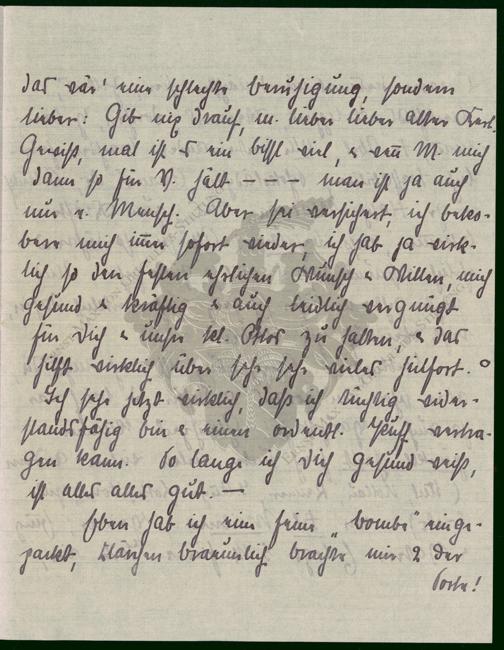 das wär' eine schlechte Beruhigung, sondern
lieber: Gib nix drauf, m. lieber lieber alter Kerl.
Gewiß, mal ist es ein bissl viel, & wenn M. mich
dann so für V. hält – – – man ist ja auch
nur e. Mensch. Aber sei versichert, ich bekob-
bere mich immer sofort wieder, ich hab ja wirk-
lich so den festen ehrlichen Wunsch & Willen, mich
gesund & kräftig & auch leidlich vergnügt
für Dich & unsre kl. zu halten, & das
hilft wirklich über sehr sehr vieles hinfort.
Ich sehe jetzt wirklich, daß ich tüchtig wider-
standsfähig bin & einen ordentl. Puff vertra-
gen kann. So lange ich Dich gesund weiß,
ist alles alles gut. –
Eben hab ich eine feine „Bombe" einge-
packt, Klärchen Bräunlich brachte mir 2 der
Sorte!